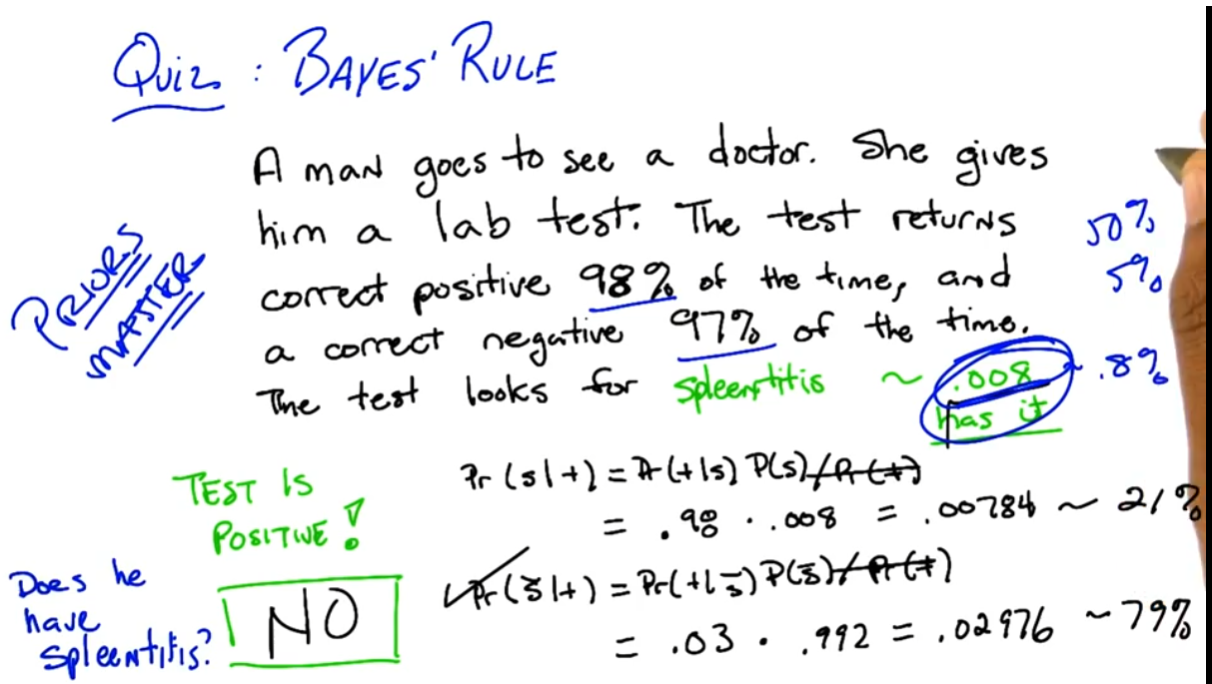 Quiz : BAYES' RULE
A man goes to see a doctor. She gives
him a lab test. The test returns
correct positive 98% of the time, and
a correct negative 97% of the time.
The test looks for spleentitis ~ .008
has it
50%
5%
~ .8%
PRIORS
MATTER
TEST IS
POSITIVE!
Does he
have
spleentitis?
NO
Pr(s|+) = Pr(+|s) P(s)/Pr(+)
= .98 · .008 = .00784 ~ 21%
✓Pr(s̄|+) = Pr(+|s̄) P(s̄)/Pr(+)
= .03 · .992 = .02976 ~79%